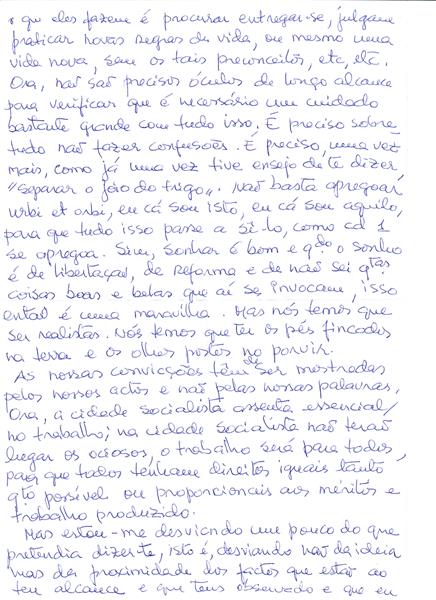 o que eles fazem é procurar entregar-se, julgam
praticar novas regras de vida, ou mesmo uma
vida nova, sem os tais preconceitos, etc, etc.
Ora, não são precisos óculos de longo alcance
para verificar que é necessário um cuidado
bastante grande com tudo isso. É preciso sobre
tudo não fazer confusões. É preciso, uma vez
mais, como já uma vez tive ensejo de te dizer,
"separar o joio do trigo". Não basta apregoar,
urbi et orbi, eu cá sou isto, eu cá sou aquilo,
para que tudo isso passe a sê-lo, como cd 1
se apregoa. Sim, sonhar é bom e qdo o sonho
é de libertação, de Reforma e de não sei qtas
coisas boas e belas que aí se invocam, isso
então é uma maravilha. Mas nós temos que
ser realistas. Nós temos que ter os pés fincados
na terra e os olhos postos no porvir.
As nossas convicções têm de ser mostradas
pelos nossos actos e não pelas nossas palavras,
Ora, a cidade socialista assenta essencial/
no trabalho; na cidade socialista não terão
lugar os ociosos, o trabalho será para todos,
para que todos tenham direitos iguais tanto
qto possível ou proporcionais aos méritos e
trabalho produzido.
Mas estou-me desviando um pouco do que
pretendia dizer-te, isto é, desviando não da ideia
mas da proximidade dos factos que estão ao
teu alcance e que tens observado e que eu